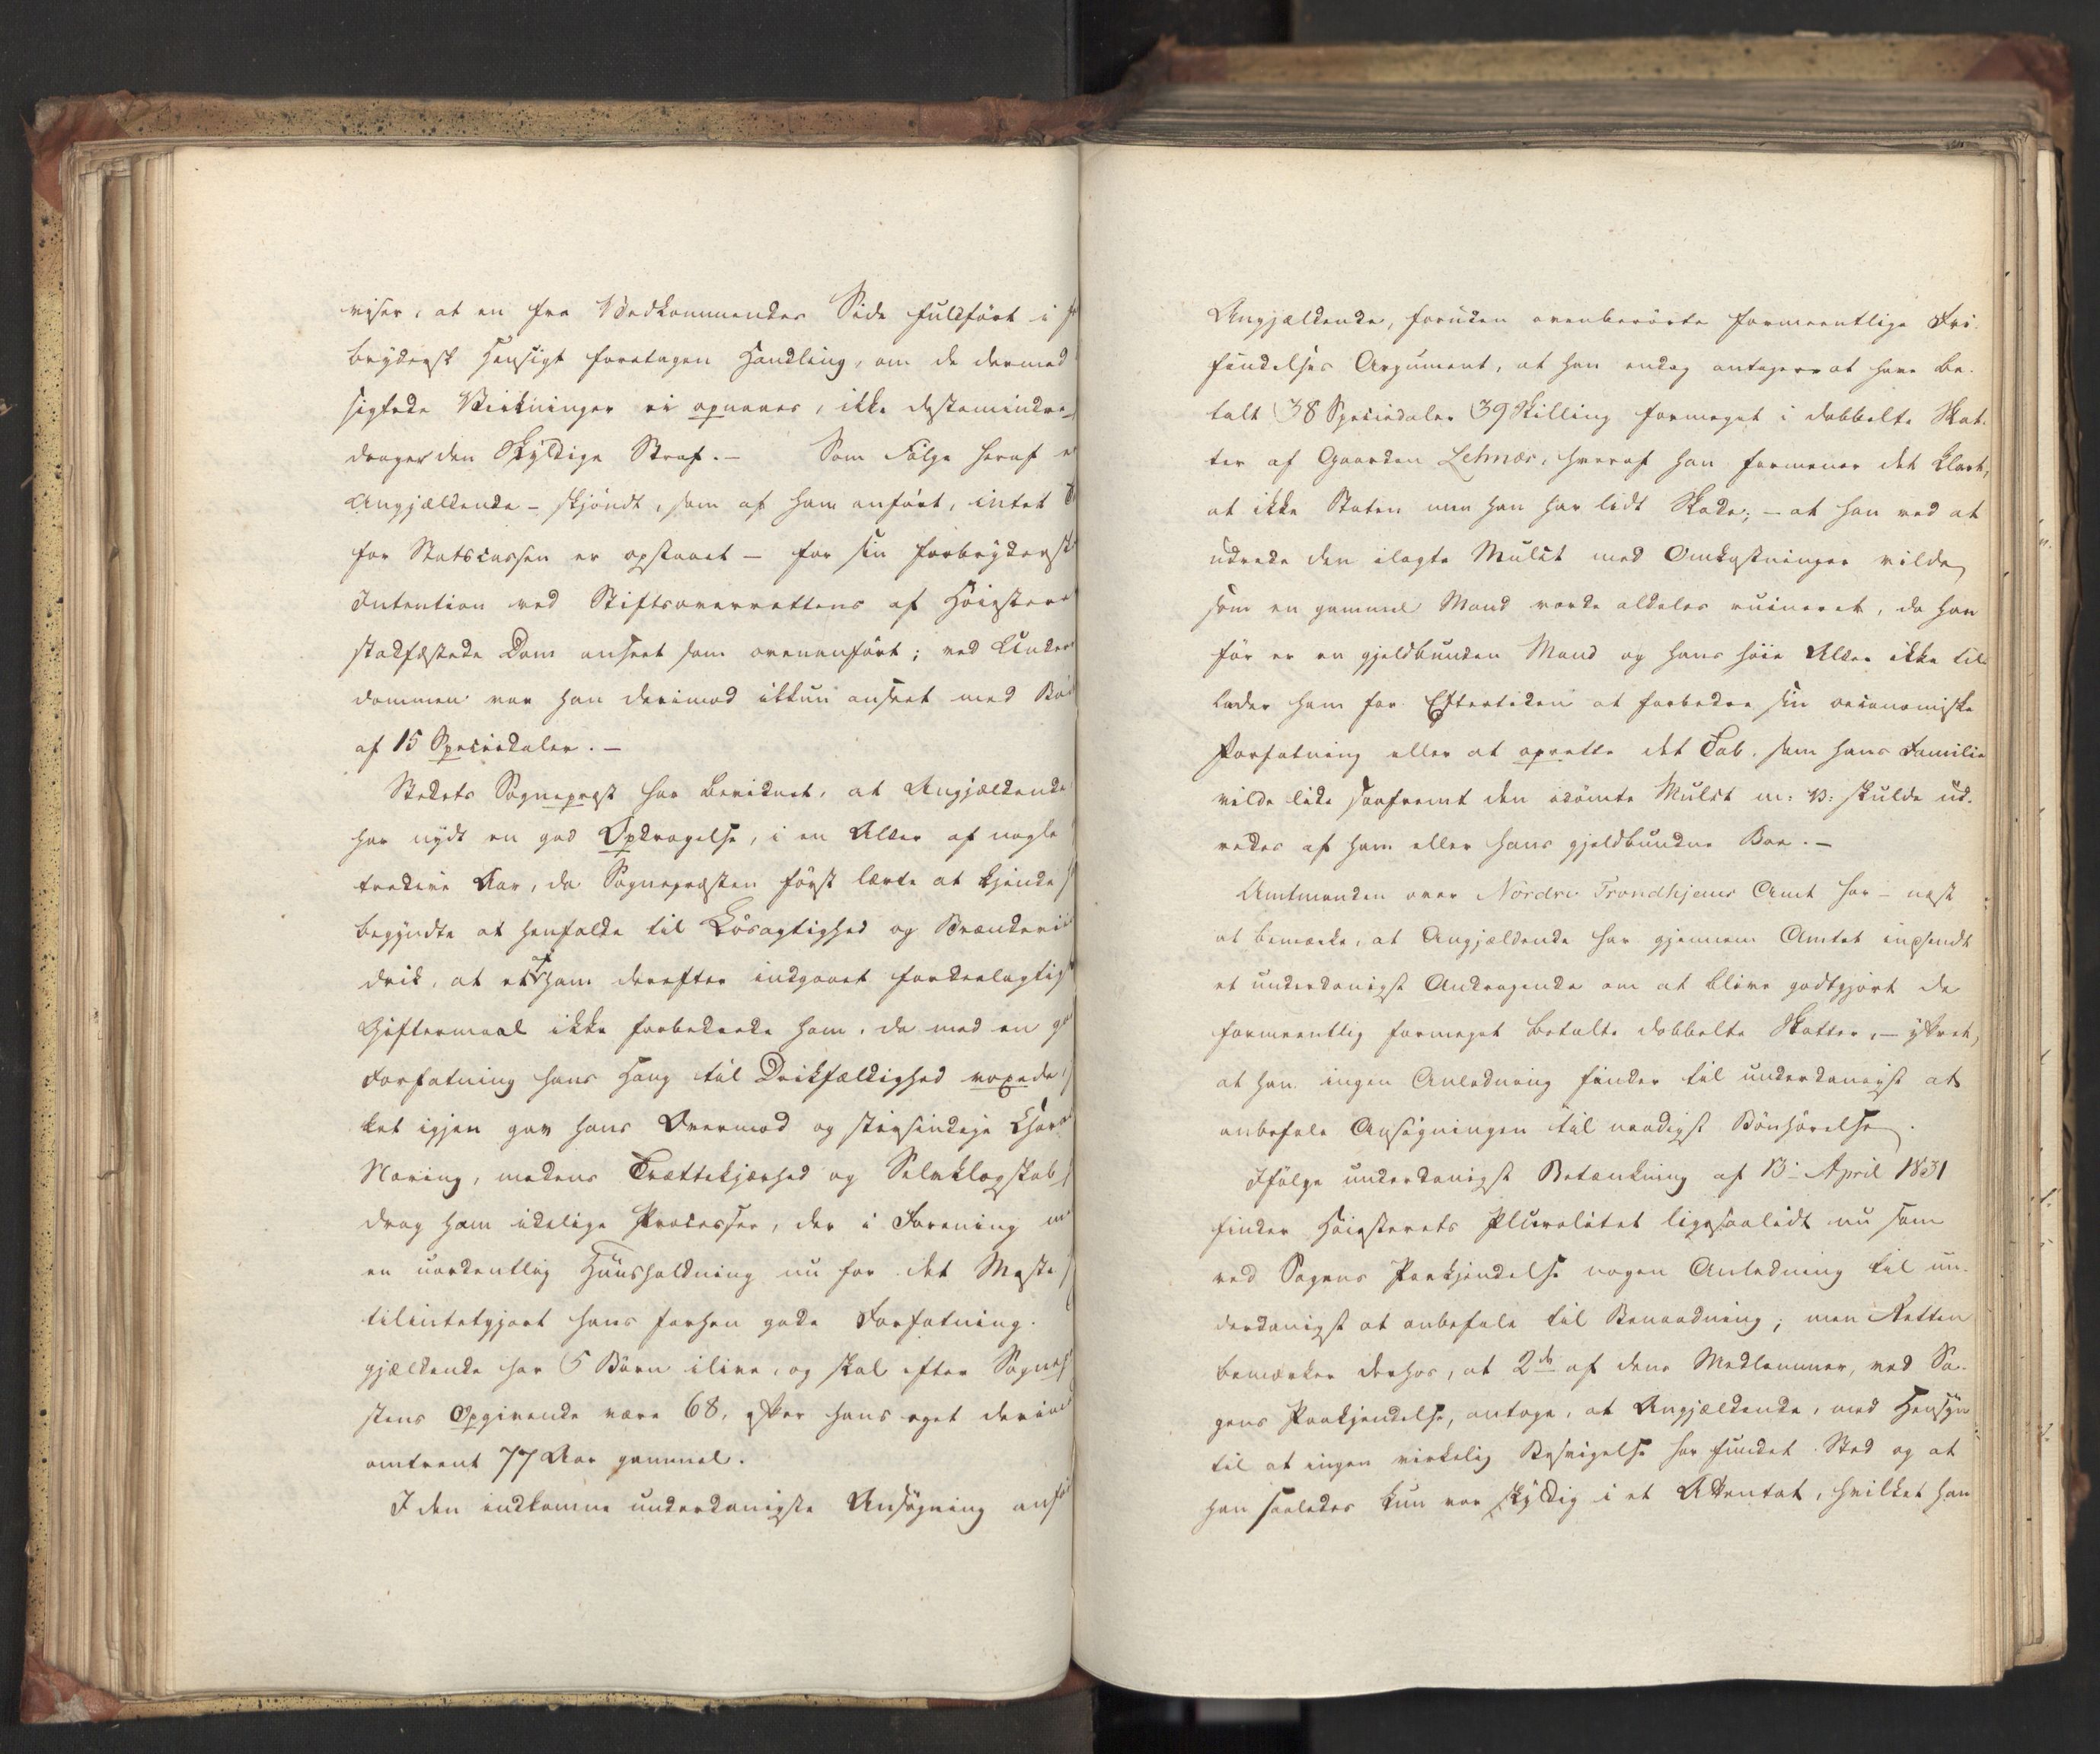 viser, at en fra Vedkommendes Side fuldført i
brydersk Hensigt foretagen Handling, om de dermed
sigtede Virkninger ei opnaaes, ikke destomindre
drager den Skyldige Straf. – Som Følge heraf
Angjældende – skjøndt, som af ham anført, intet
for Statscassen er opstaaet – for sin forbrydersk
Intention ved Stiftsoverrettens af Høieste
stadfæstede Dom anseet som ovenanført; ved Under
dommen var han derimod ikkun anseet med
af 15 Speciedaler. –
Stedets Sognepræst har bevidnet, at Angjældende
har nydt en god Opdragelse, i en Alder af nogle
tredive Aar, da Sognepræsten først lærte at kjende
begyndte at henfalde til Løsagtighed og Brænde
drik, at et af ham derefter indgaaet fordeelagtigt
Giftermaal ikke forbedrede ham, da med en
Forfatning hans Hang til Drikfældighed voxede,
ket igjen gav hans Overmod og stivsindige
Næring, medens Trættekjærhed og Selvklogskab
drog ham idelige Processer, der i Forening
en uordentlig Huusholdning nu for det Meste
tilintetgjort hans forhen gode Forfatning.
gjældende har 5 Børn ilive, og skal efter Sogne
stens Opgivende være 68, efter hans eget
omtrent 77 Aar gammel.
I den indkomne underdanigste Ansøgning
Angjældende, foruden ovenberørte formeentlige Fri-
findelses Argument, at han endog antager at have be-
talt 38 Speciedaler 39 Skilling formeget i dobbelte Skat-
ter af Gaarden Lehnæs, hvoraf han formener det klart,
at ikke Staten men han har lidt Skade; – at han ved at
udrede den ilagte Mulct med Omkostninger vilde
som en gammel Mand vorde aldeles ruineret, da han
før er en gjeldbunden Mand og hans høie Alder ikke til
lader ham for Eftertiden at forbedre sin oeconomiske
Forfatning eller at oprette det Tab, som hans Familie
vilde lide saafremt den idømte Mulct m: v: skulde ud-
redes af ham eller hans gjeldbundne Boe. –
Amtmanden over Nordre Trondhjems Amt har – næst
at bemærke, at Angjældende har gjennem Amtet indsendt
et underdanigst Andragende om at blive godtgjort de
formeentlig formeget betalte dobbelte Skatter, – yttret,
at han ingen Anledning finder til underdanigst at
anbefale Ansøgningen til naadigst Bønhørelse.
Ifølge underdanigst Betænkning af 13 April 1831
finder Høiesterets Pluralitet ligesaalidt nu som
ved Sagens Paakjendelse nogen Anledning til un-
derdanigst at anbefale til Benaadning; men Retten
bemærker derhos, at 2de af dens Medlemmer, ved Sa-
gens Paakjendelse, antoge, at Angjældende, med Hensyn
til at ingen virkelig Besvigelse har fundet Sted og at
han saaledes kun var skyldig i et Attentat, hvilket han